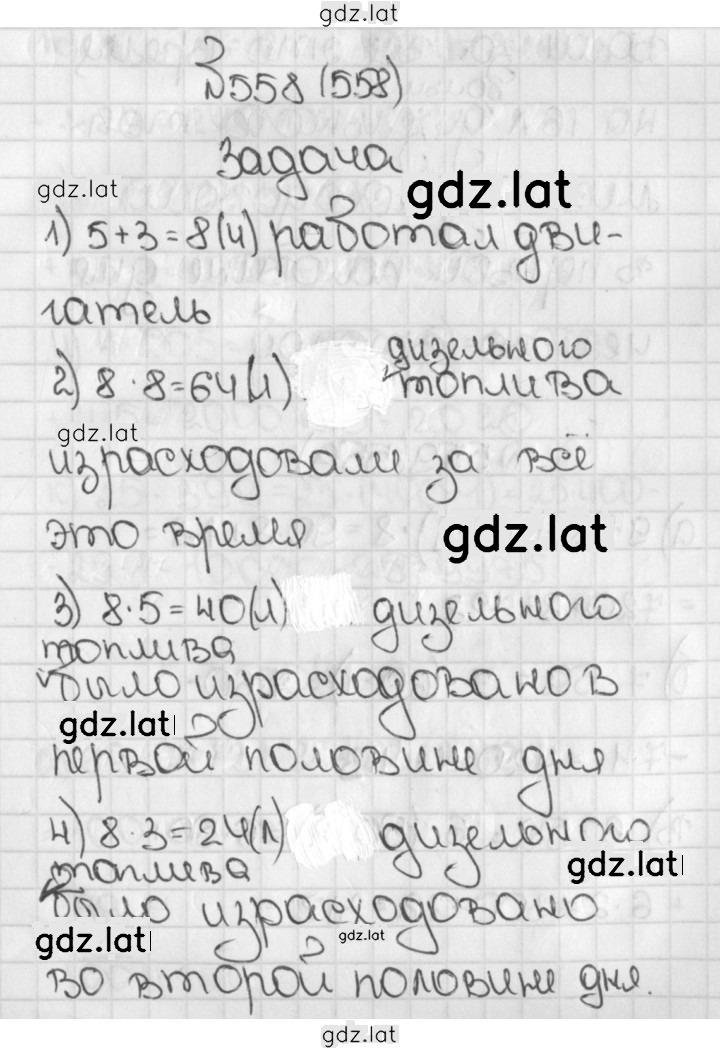 gdz.lat
№558 (558)
Задача
gdz.lat
gdz.lat
1) 5+3=8(ч) работал дви-
гатель
2) 8·8=64(л) дизельного
топлива
gdz.lat
израсходовали за всё
это время
gdz.lat
3) 8·5=40(л) дизельного
топлива
было израсходовано в
gdz.lat
первой половине дня
4) 8·3=24(л) дизельного
топлива
gdz.lat
было израсходовано
gdz.lat
gdz.lat
во второй половине дня.
gdz.lat